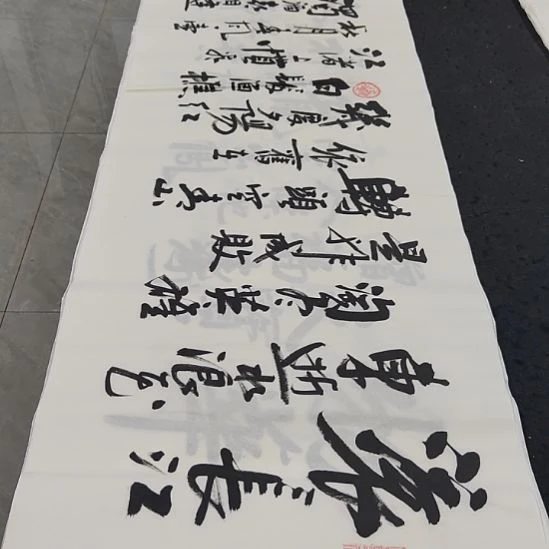 滚滚長江
東逝水浪花
淘尽英雄
是非成敗
轉頭空青山
依舊在
幾度夕陽红
白髮漁樵
江渚上慣看
秋月春風壹